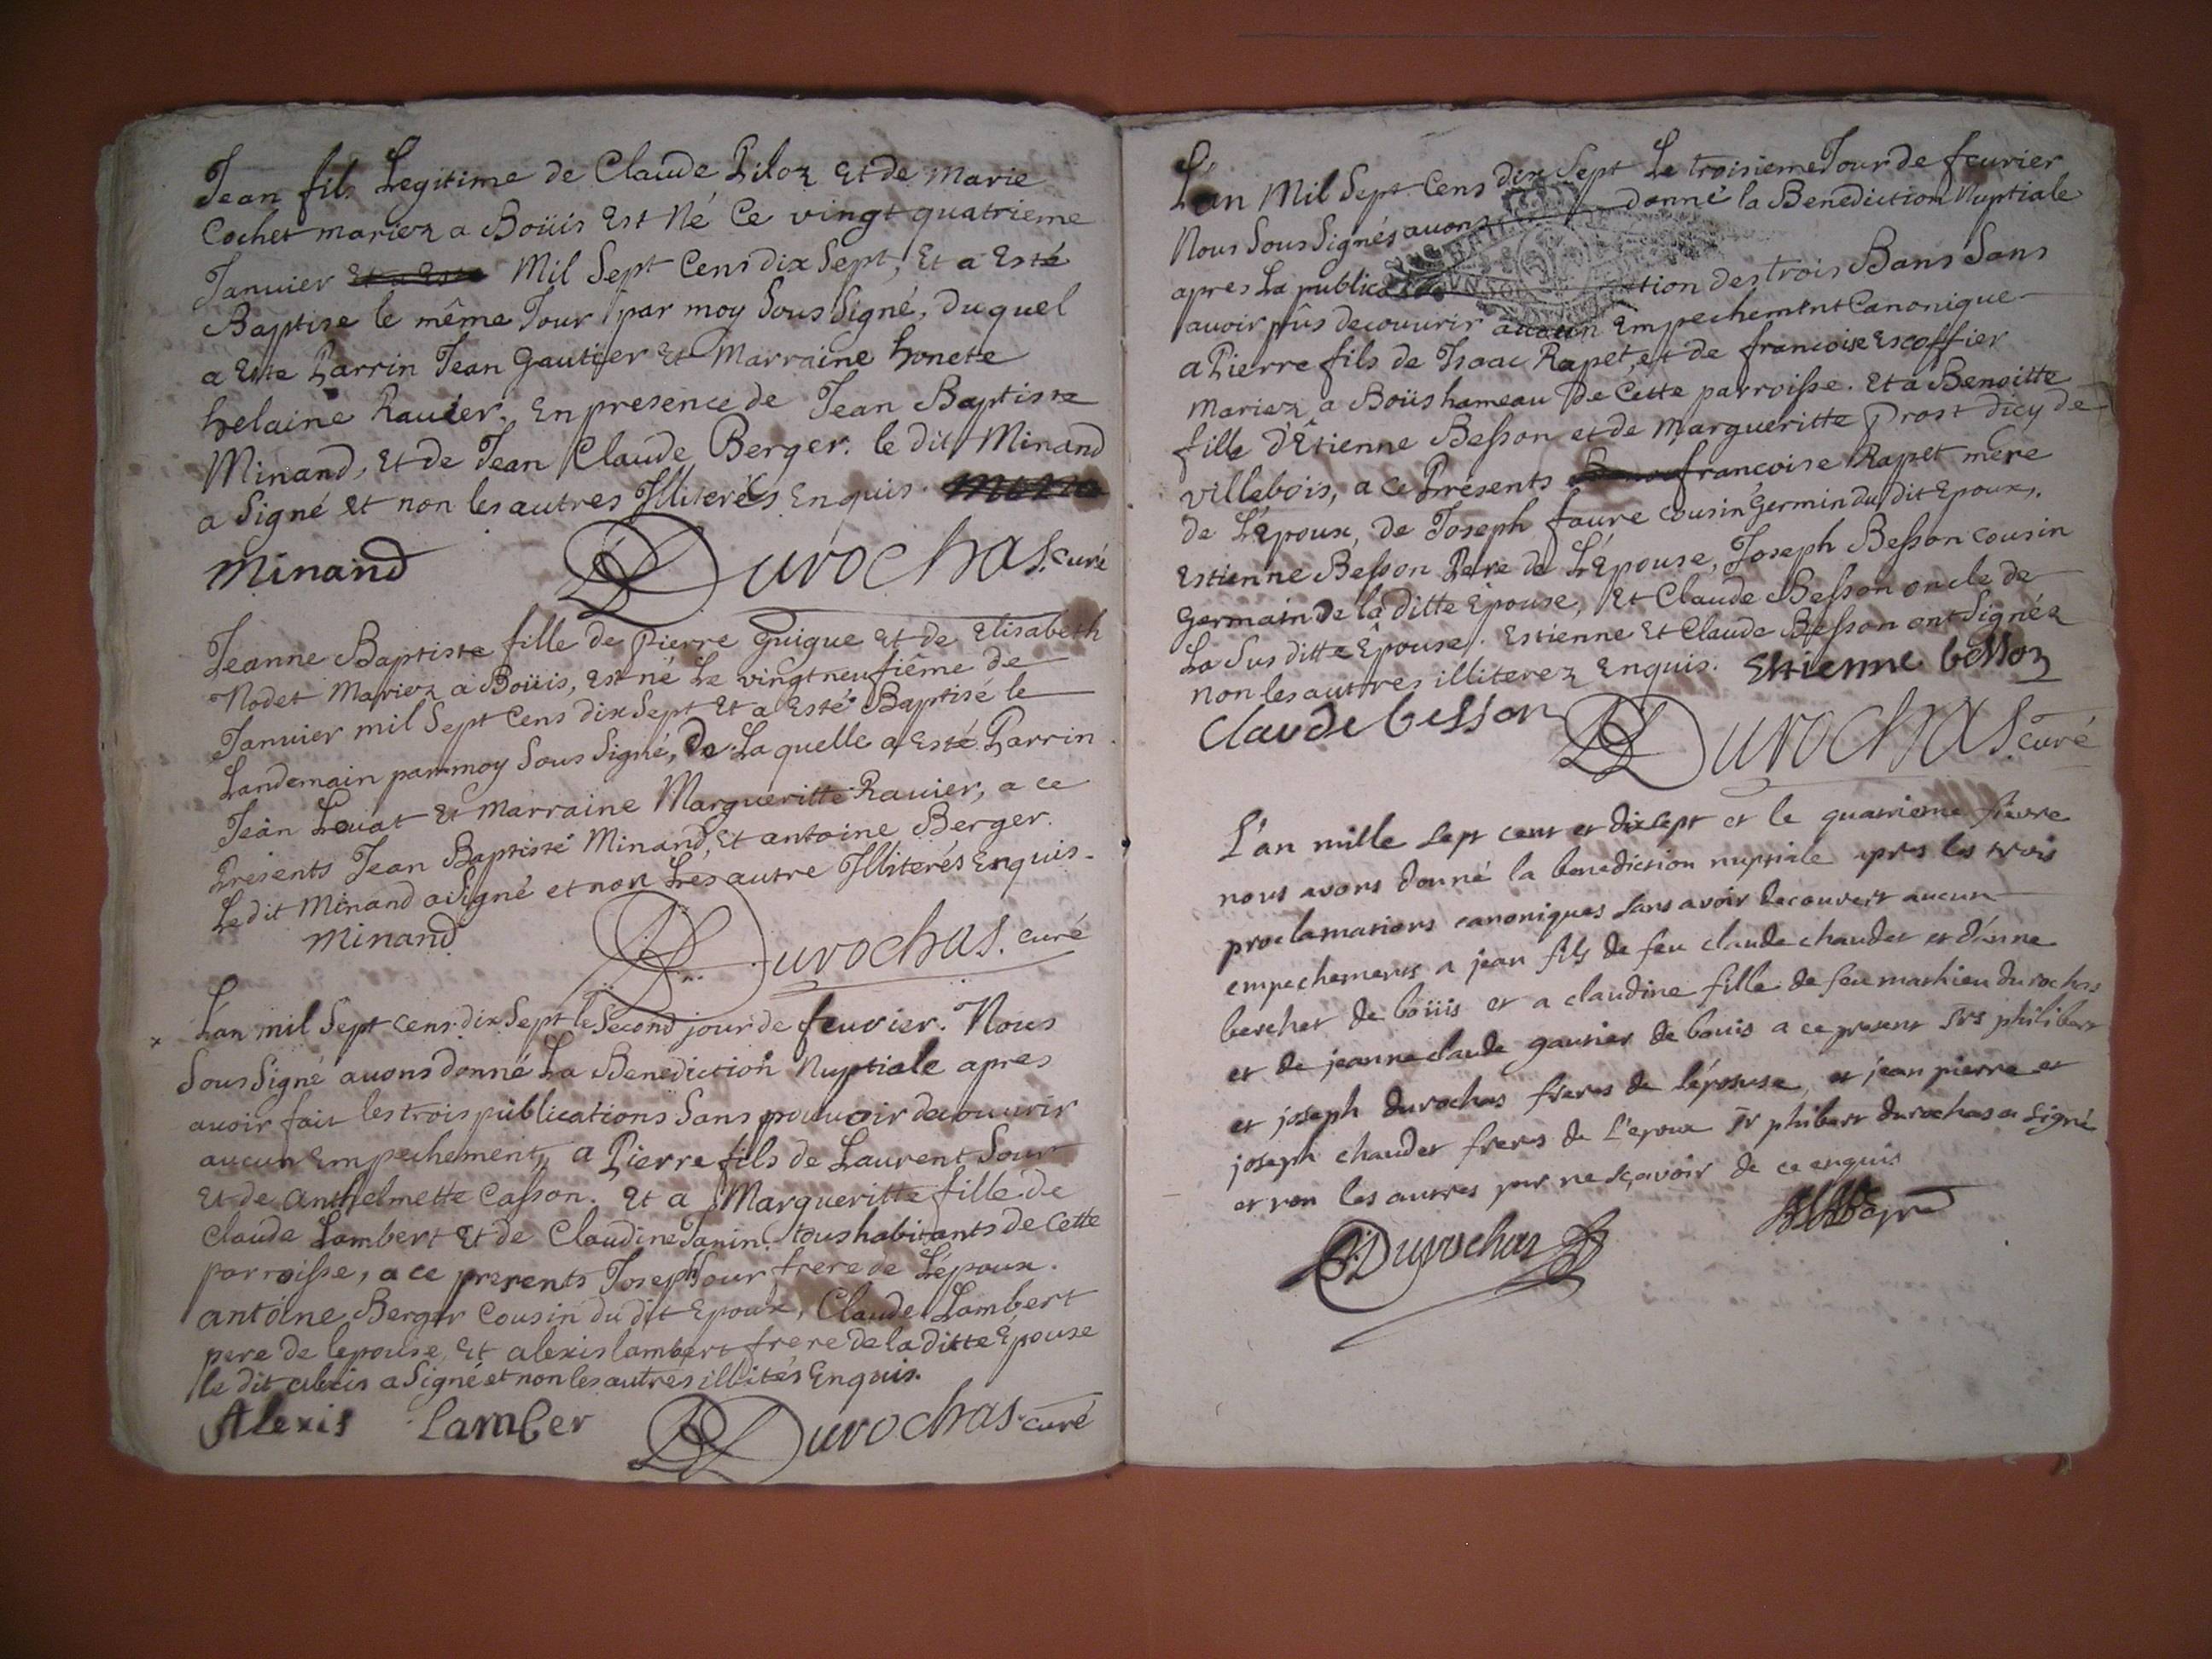 Jean fils Legitime de Claude Piloz Et de Marie
Cochet mariez a Boüis Est Né Ce vingt quatrieme
Januier Et a Esté Mil Sept Cens dix Sept, Et a Esté
Baptise le même Jour par moy Sous Signé, duquel
a Esté Parrin Jean Gautier Et Marraine honeste
helaine Rauier, En presence de Jean Baptiste
Minand, Et de Jean Claude Berger. le dit Minand
a Signé Et non les autres Illiterés Enquis.
Minand Durochas. curé
Jeanne Baptiste fille de Pierre Guigue Et de Elisabeth
Nodet Mariez a Boüis, Est né Le vingt neufiême de
Januier mil Sept Cens dix Sept Et a Esté Baptisé le
Landemain par moy Sous Signé, De Laquelle a Esté Parrin
Jean Louat Et Marraine Margueritte Rauier, a ce
Présents Jean Baptiste Minand, Et antoine Berger.
Le dit Minand a Signé et non Les autre Illiterés Enquis.
Minand Durochas. curé
x Lan mil Sept cens dix Sept le Second jour de feurier. Nous
Sous Signé auons donné La Benediction Nuptiale apres
auoir fait les trois publications Sans pouuoir decouurir
aucun Empechement, a Pierre fils de Laurent Sour
Et de Anthelmette Casson. Et a Margueritte fille de
Claude Lambert Et de Claudine Janin. tous habitants de Cette
parroisse, a ce presents Joseph Sour frere de Lépoux.
antoine Berger Cousin du dit Epoux, Claude Lambert
pere de lepouse, Et alexis lambert frere de la ditte Épouse
le dit alexis a Signé et non les autres illités Enquis.
Alexis Lamber Durochas. curé
L'an Mil Sept Cens dix Sept Le troisieme Jour de feurier
Nous Sous Signés auons donné la Benediction Nuptiale
apres La publication des trois Bans Sans
auoir pûs decouurir aucun Empechement Canonique
a Pierre fils de Isaac Rapet, et de francoise Escoffier
Mariez a Boüis hameau De Cette parroisse. Et a Benoitte
fille d'Êtienne Besson et de Margueritte Prost dicy de
villebois, a ce Présents francoise Rapet mère
de L'Époux, de Joseph faure cousin Germin du dit Epoux,
Estienne Besson Pere de L'Épouse, Joseph Besson cousin
Germain de la ditte Epouse, Et Claude Besson oncle de
La Sus ditte Êpouse. Estienne Et Claude Besson ont Signéz
non les autres illiterez Enquis. Estienne besson
Claude besson Durochas. curé
L'an mille sept cent et dixsept et le quatrieme fievre
nous avons donné la benediction nuptiale apres les trois
proclamations canoniques sans avoir decouvert aucun
empechements a jean fils de feu claude chaudet et d'anne
berchet de boüis et a claudine fille de feu mathieu durochas
et de jeanne claude gautier de bouis a ce present Srs philibert
et joseph durochas freres de lépouse, et jean pierre et
joseph chaudet freres de l'epoux Sr phibert durochas a signé
et non les autres pour ne sçavoir de ce enquis
Durochas